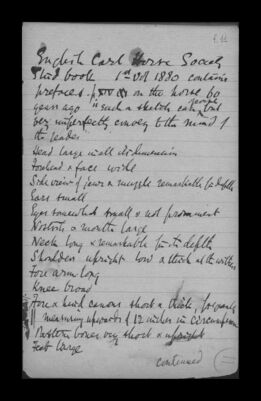 English Cart Horse Society
Stud book 1st vol 1880 contains
preface p XIV on the horse 60
years ago "such a sketch can
very imperfectly convey to the mind of
the reader
Head large in all its dimensions
Forehead & face wide
Side view of jaws & muzzle remarkable for depth
Ears small
Eyes somewhat small & not prominent
Nostrils & mouth large
Neck long & remarkable for its depth
Shoulders upright low & thick at the withers
Fore arm long
Knee broad
Fore & hind canons short & thick, frequently
measuring upwards of 12 inches in circumference
Pastern bones very short & upright
Feet large
continued